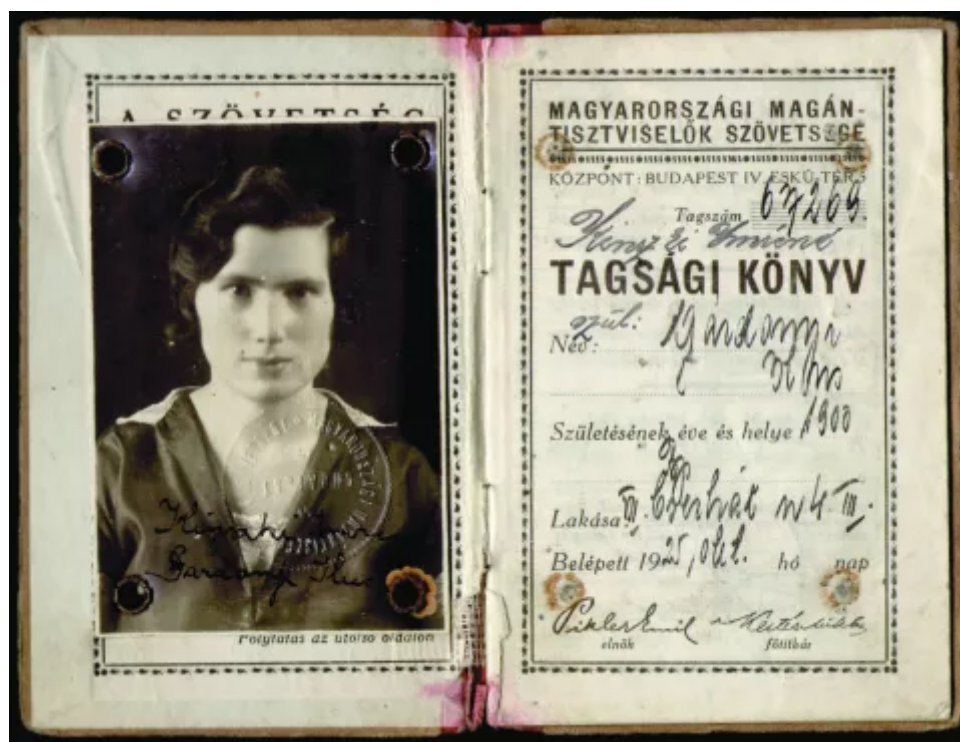 A SZÖVETSÉG
Gardonyi Ilus
Folytatás az utolsó oldalon
MAGYARORSZÁGI MAGÁN-
TISZTVISELŐK SZÖVETSÉGE
KÖZPONT: BUDAPEST IV. ESKÜ-TÉR 5
Tagszám 67269.
TAGSÁGI KÖNYV
szül: Gardonyi
Név:
Ilus
Születésének éve és helye 1900
Lakása
Belépett 1925, okt. hó nap
Pikler Emil
elnök főtitkár